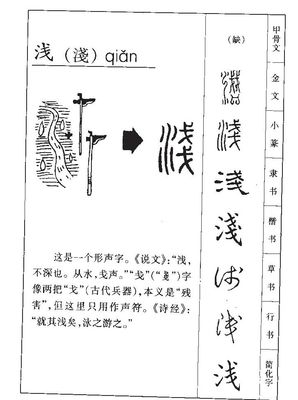 浅（淺）qiǎn
淺
这是一个形声字。《说文》：“浅，
不深也。从水，戋声。”“戋”（“戔”）字
像两把“戈”（古代兵器），本义是“残
害”，但这里只用作声符。《诗经》：
“就其浅矣，泳之游之。”
（缺）
淺
淺
淺
淺
浅
浅
浅
甲骨文
金文
小篆
隶书
楷书
草书
行书
简化字